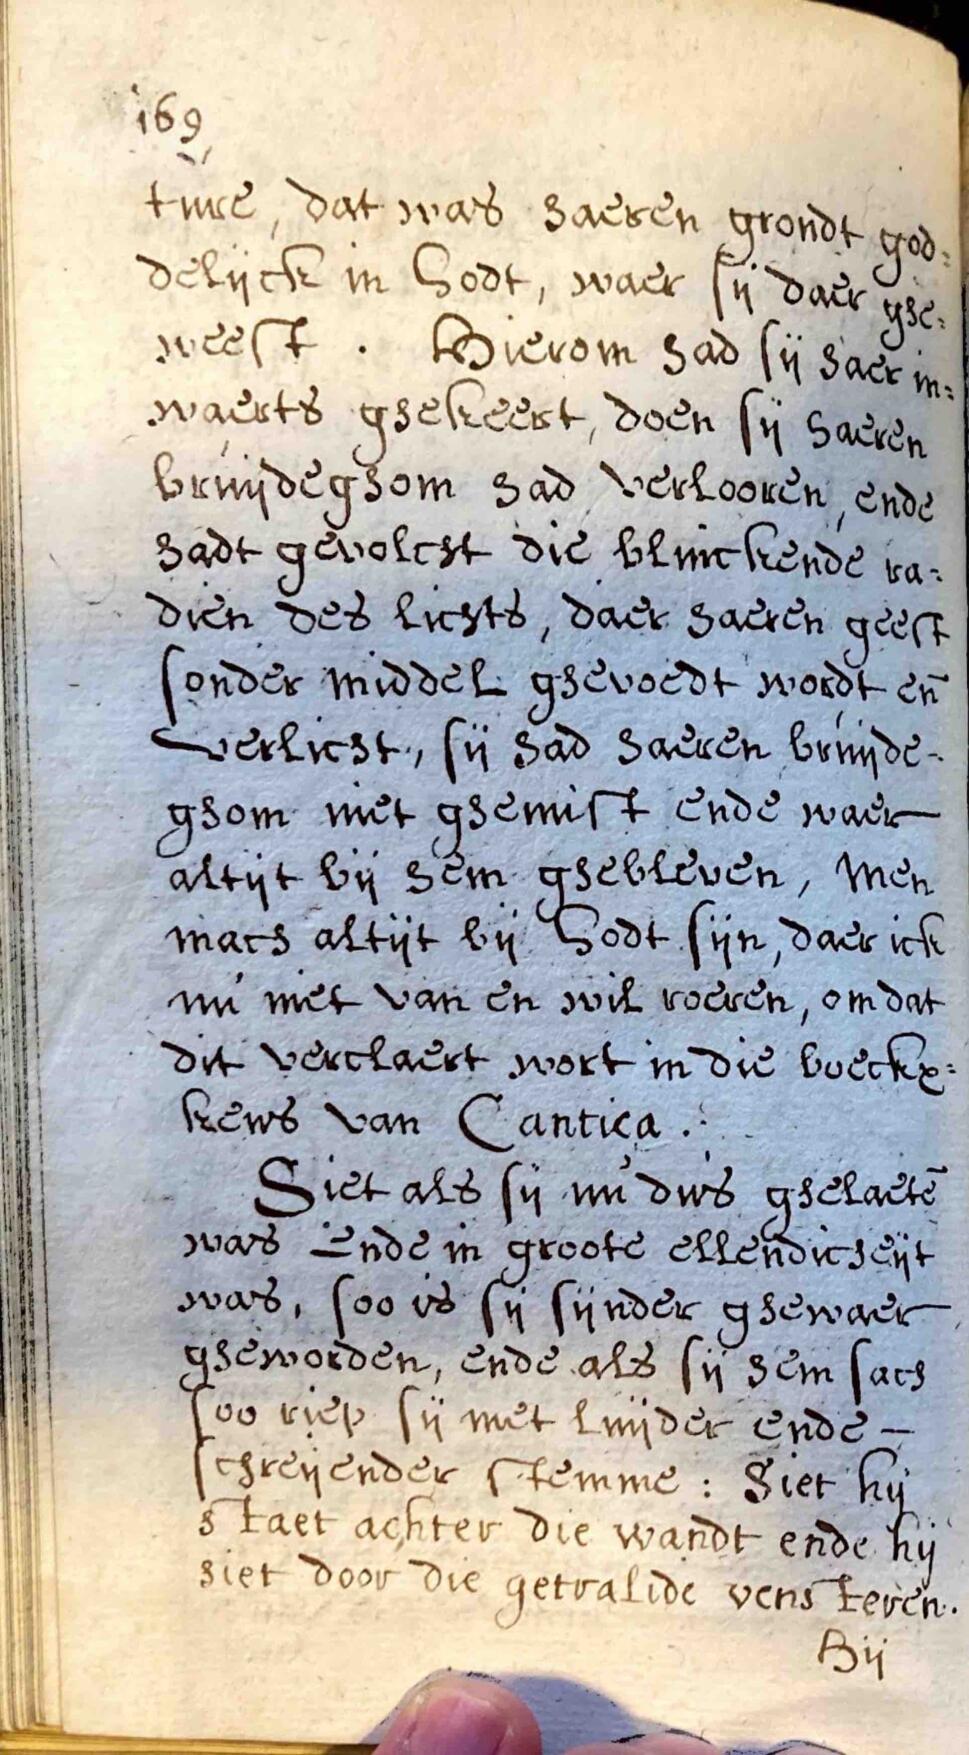 169
ture, dat was haeren grondt god=
delijck in Godt, waer sij daer ghe=
weest. Hierom had sij haer in=
waerts ghekeert, doen sij haeren
bruijdeghom had verlooren, ende
hadt gevolcht die blinckende ra=
dien des lichts, daer haeren geest
sonder middel ghevoedt wordt en̄
verlicht, sij had haeren bruijde-
ghom niet ghemist ende waer
altijt bij hem ghebleven, Men
mach altijt bij Godt sijn, daer ick
nu niet van en wil roeren, om dat
dit verclaert wort in die boeckx=
kens van Cantica.
Siet als sij nu dus ghelaetē
was Ende in groote ellendicheijt
was, soo is sij sijnder ghewaer
gheworden, ende als sij hem sach
soo riep sij met luijder ende –
schreijender stemme: Siet hij
staet achter die wandt ende hij
siet door die getralide vensteren.
Bij